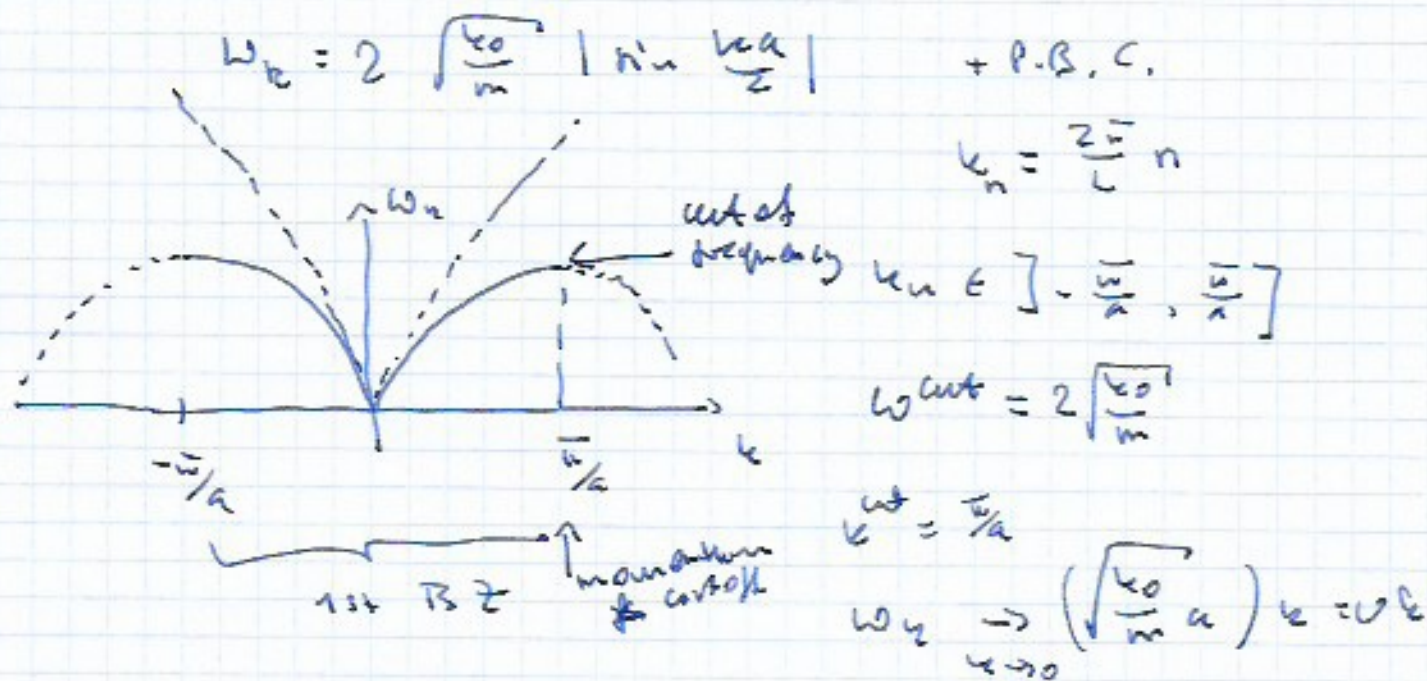 ω_k = 2 √(k₀/m) | sin ka/2 | + P.B.C.
k_n = 2π/L n
ω_k
cut of
frequency
k_n ∈ ] - π/a , π/a ]
ω^cut = 2 √(k₀/m)
-π/a
π/a
k
k^cut = π/a
1st BZ
momentum
cutoff
ω_k → (√(k₀/m) a) k = v k
k→0